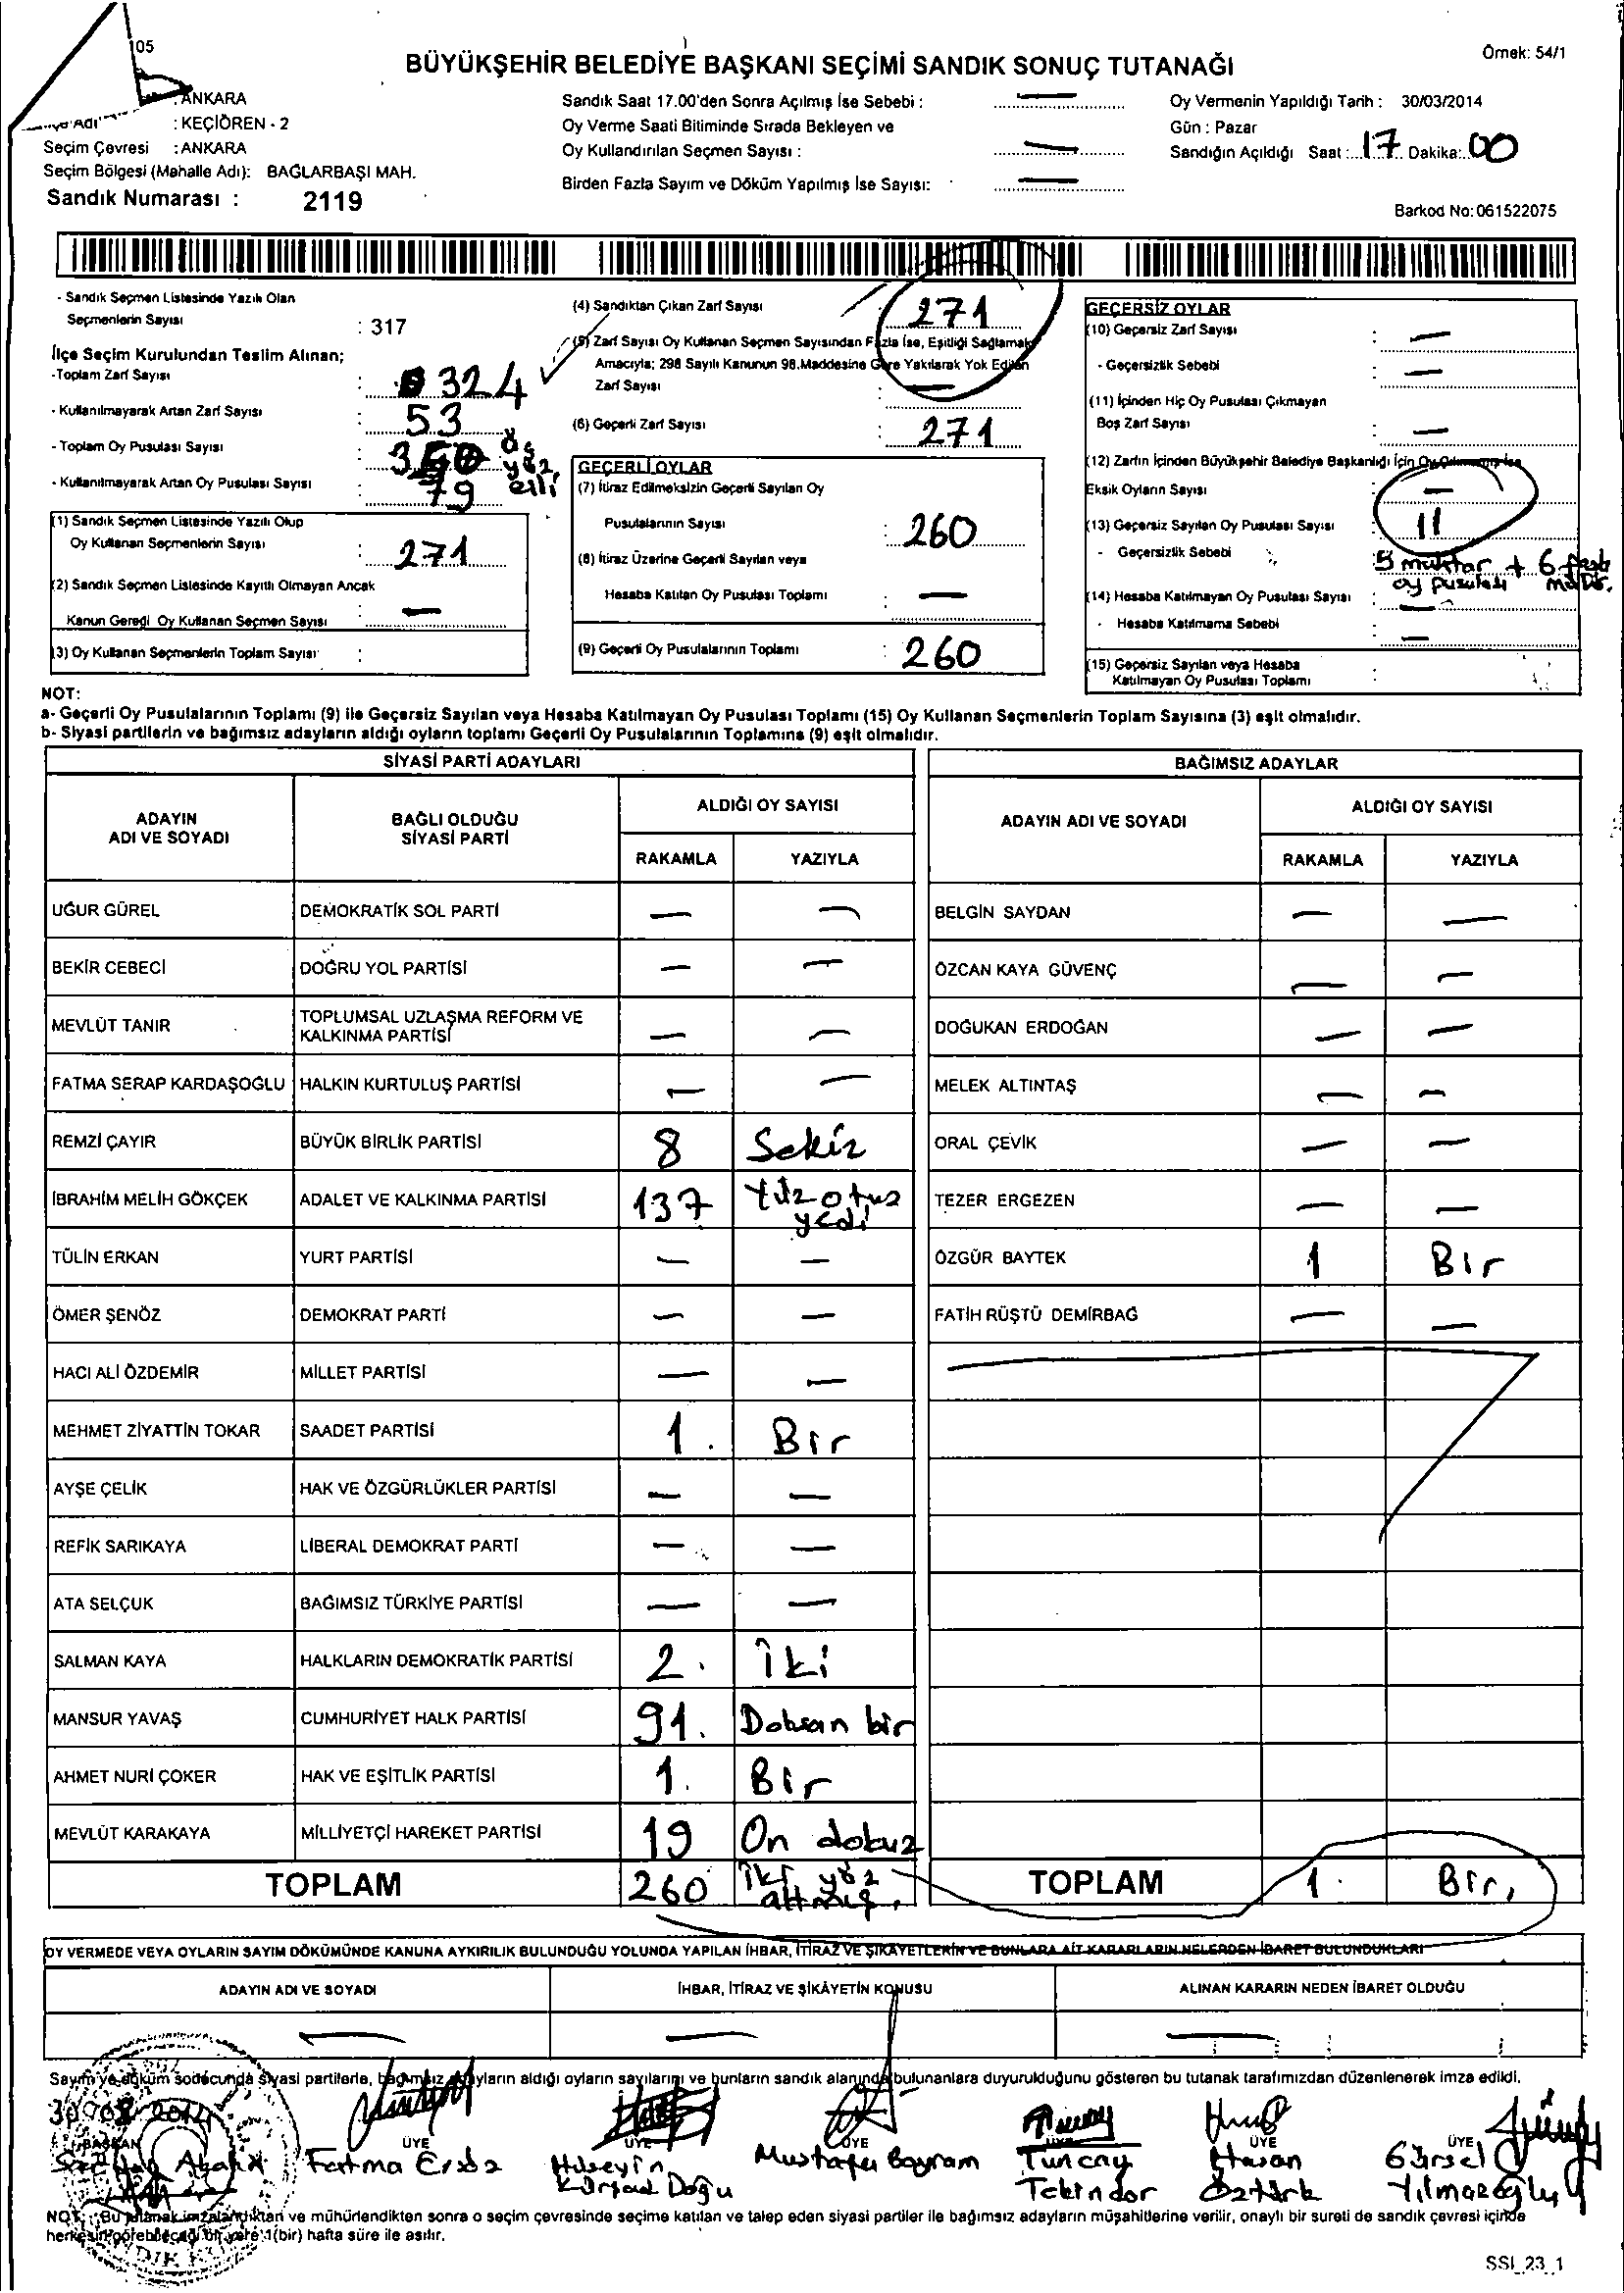 105
BÜYÜKŞEHİR BELEDİYE BAŞKANI SEÇİMİ SANDIK SONUÇ TUTANAĞI
Örnek: 54/1
: ANKARA
Adı : KEÇİÖREN - 2
Seçim Çevresi : ANKARA
Seçim Bölgesi (Mahalle Adı): BAĞLARBAŞI MAH.
Sandık Numarası : 2119
Sandık Saat 17.00'den Sonra Açılmış İse Sebebi : —
Oy Verme Saati Bitiminde Sırada Bekleyen ve
Oy Kullandırılan Seçmen Sayısı : —
Birden Fazla Sayım ve Döküm Yapılmış İse Sayısı: —
Oy Vermenin Yapıldığı Tarih : 30/03/2014
Gün : Pazar
Sandığın Açıldığı Saat : 17 Dakika: 00
Barkod No: 061522075
- Sandık Seçmen Listesinde Yazılı Olan
Seçmenlerin Sayısı : 317
İlçe Seçim Kurulundan Teslim Alınan;
-Toplam Zarf Sayısı : 324
- Kullanılmayarak Artan Zarf Sayısı : 53
- Toplam Oy Pusulası Sayısı : 350 üç yüz elli
- Kullanılmayarak Artan Oy Pusulası Sayısı : 79
(1) Sandık Seçmen Listesinde Yazılı Olup
Oy Kullanan Seçmenlerin Sayısı : 271
(2) Sandık Seçmen Listesinde Kayıtlı Olmayan Ancak
Kanun Gereği Oy Kullanan Seçmen Sayısı : —
(3) Oy Kullanan Seçmenlerin Toplam Sayısı :
(4) Sandıktan Çıkan Zarf Sayısı : 271
(5) Zarf Sayısı Oy Kullanan Seçmen Sayısından Fazla İse, Eşitliği Sağlamak
Amacıyla; 298 Sayılı Kanunun 98.Maddesine Göre Yakılarak Yok Edilen
Zarf Sayısı : —
(6) Geçerli Zarf Sayısı : 271
GEÇERLİ OYLAR
(7) İtiraz Edilmeksizin Geçerli Sayılan Oy
Pusulalarının Sayısı : 260
(8) İtiraz Üzerine Geçerli Sayılan veya
Hesaba Katılan Oy Pusulası Toplamı : —
(9) Geçerli Oy Pusulalarının Toplamı : 260
GEÇERSİZ OYLAR
(10) Geçersiz Zarf Sayısı : —
- Geçersizlik Sebebi : —
(11) İçinden Hiç Oy Pusulası Çıkmayan
Boş Zarf Sayısı : —
(12) Zarfın İçinden Büyükşehir Belediye Başkanlığı İçin Oy Çıkmamış İse
Eksik Oyların Sayısı —
(13) Geçersiz Sayılan Oy Pusulası Sayısı : 11
- Geçersizlik Sebebi : 5 muhtar + 6 fazla
oy pusulası
(14) Hesaba Katılmayan Oy Pusulası Sayısı : —
- Hesaba Katılmama Sebebi : —
(15) Geçersiz Sayılan veya Hesaba
Katılmayan Oy Pusulası Toplamı :
NOT:
a- Geçerli Oy Pusulalarının Toplamı (9) ile Geçersiz Sayılan veya Hesaba Katılmayan Oy Pusulası Toplamı (15) Oy Kullanan Seçmenlerin Toplam Sayısına (3) eşit olmalıdır.
b- Siyasi partilerin ve bağımsız adayların aldığı oyların toplamı Geçerli Oy Pusulalarının Toplamına (9) eşit olmalıdır.
SİYASİ PARTİ ADAYLARI
ADAYIN ADI VE SOYADI BAĞLI OLDUĞU SİYASİ PARTİ ALDIĞI OY SAYISI
RAKAMLA YAZIYLA
UĞUR GÜREL DEMOKRATİK SOL PARTİ — —
BEKİR CEBECİ DOĞRU YOL PARTİSİ — —
MEVLÜT TANIR TOPLUMSAL UZLAŞMA REFORM VE KALKINMA PARTİSİ — —
FATMA SERAP KARDAŞOĞLU HALKIN KURTULUŞ PARTİSİ — —
REMZİ ÇAYIR BÜYÜK BİRLİK PARTİSİ 8 Sekiz
İBRAHİM MELİH GÖKÇEK ADALET VE KALKINMA PARTİSİ 137 Yüz otuz yedi
TÜLİN ERKAN YURT PARTİSİ — —
ÖMER ŞENÖZ DEMOKRAT PARTİ — —
HACI ALİ ÖZDEMİR MİLLET PARTİSİ — —
MEHMET ZİYATTİN TOKAR SAADET PARTİSİ 1. Bir
AYŞE ÇELİK HAK VE ÖZGÜRLÜKLER PARTİSİ — —
REFİK SARIKAYA LİBERAL DEMOKRAT PARTİ — —
ATA SELÇUK BAĞIMSIZ TÜRKİYE PARTİSİ — —
SALMAN KAYA HALKLARIN DEMOKRATİK PARTİSİ 2. İki
MANSUR YAVAŞ CUMHURİYET HALK PARTİSİ 91. Doksan bir
AHMET NURİ ÇOKER HAK VE EŞİTLİK PARTİSİ 1. Bir
MEVLÜT KARAKAYA MİLLİYETÇİ HAREKET PARTİSİ 19 On dokuz
TOPLAM 260 İki yüz altmış.
BAĞIMSIZ ADAYLAR
ADAYIN ADI VE SOYADI ALDIĞI OY SAYISI
RAKAMLA YAZIYLA
BELGİN SAYDAN — —
ÖZCAN KAYA GÜVENÇ — —
DOĞUKAN ERDOĞAN — —
MELEK ALTINTAŞ — —
ORAL ÇEVİK — —
TEZER ERGEZEN — —
ÖZGÜR BAYTEK 1 Bir
FATİH RÜŞTÜ DEMİRBAĞ — —
TOPLAM 1. Bir.
OY VERMEDE VEYA OYLARIN SAYIM DÖKÜMÜNDE KANUNA AYKIRILIK BULUNDUĞU YOLUNDA YAPILAN İHBAR, İTİRAZ VE ŞİKAYETLERİN VE BUNLARA AİT KARARLARIN NELERDEN İBARET BULUNDUKLARI
ADAYIN ADI VE SOYADI İHBAR, İTİRAZ VE ŞİKÂYETİN KONUSU ALINAN KARARIN NEDEN İBARET OLDUĞU
— — —
Sayım ve döküm sonucunda siyasi partilerle, bağımsız adayların aldığı oyların sayılarını ve bunların sandık alanında bulunanlara duyurulduğunu gösteren bu tutanak tarafımızdan düzenlenerek imza edildi.
BAŞKAN ÜYE ÜYE ÜYE ÜYE ÜYE ÜYE
Fatma
Hüseyin Kürşad Doğu
Mustafa Bayram
Tuncay Tekindor
Hasan Öztürk
Gürsel Yılmazoğlu
NOT: Bu tutanak imzalandıktan ve mühürlendikten sonra o seçim çevresinde seçime katılan ve talep eden siyasi partiler ile bağımsız adayların müşahitlerine verilir, onaylı bir sureti de sandık çevresi içinde
herkesin görebileceği bir yere 1(bir) hafta süre ile asılır.
SSI_23_1